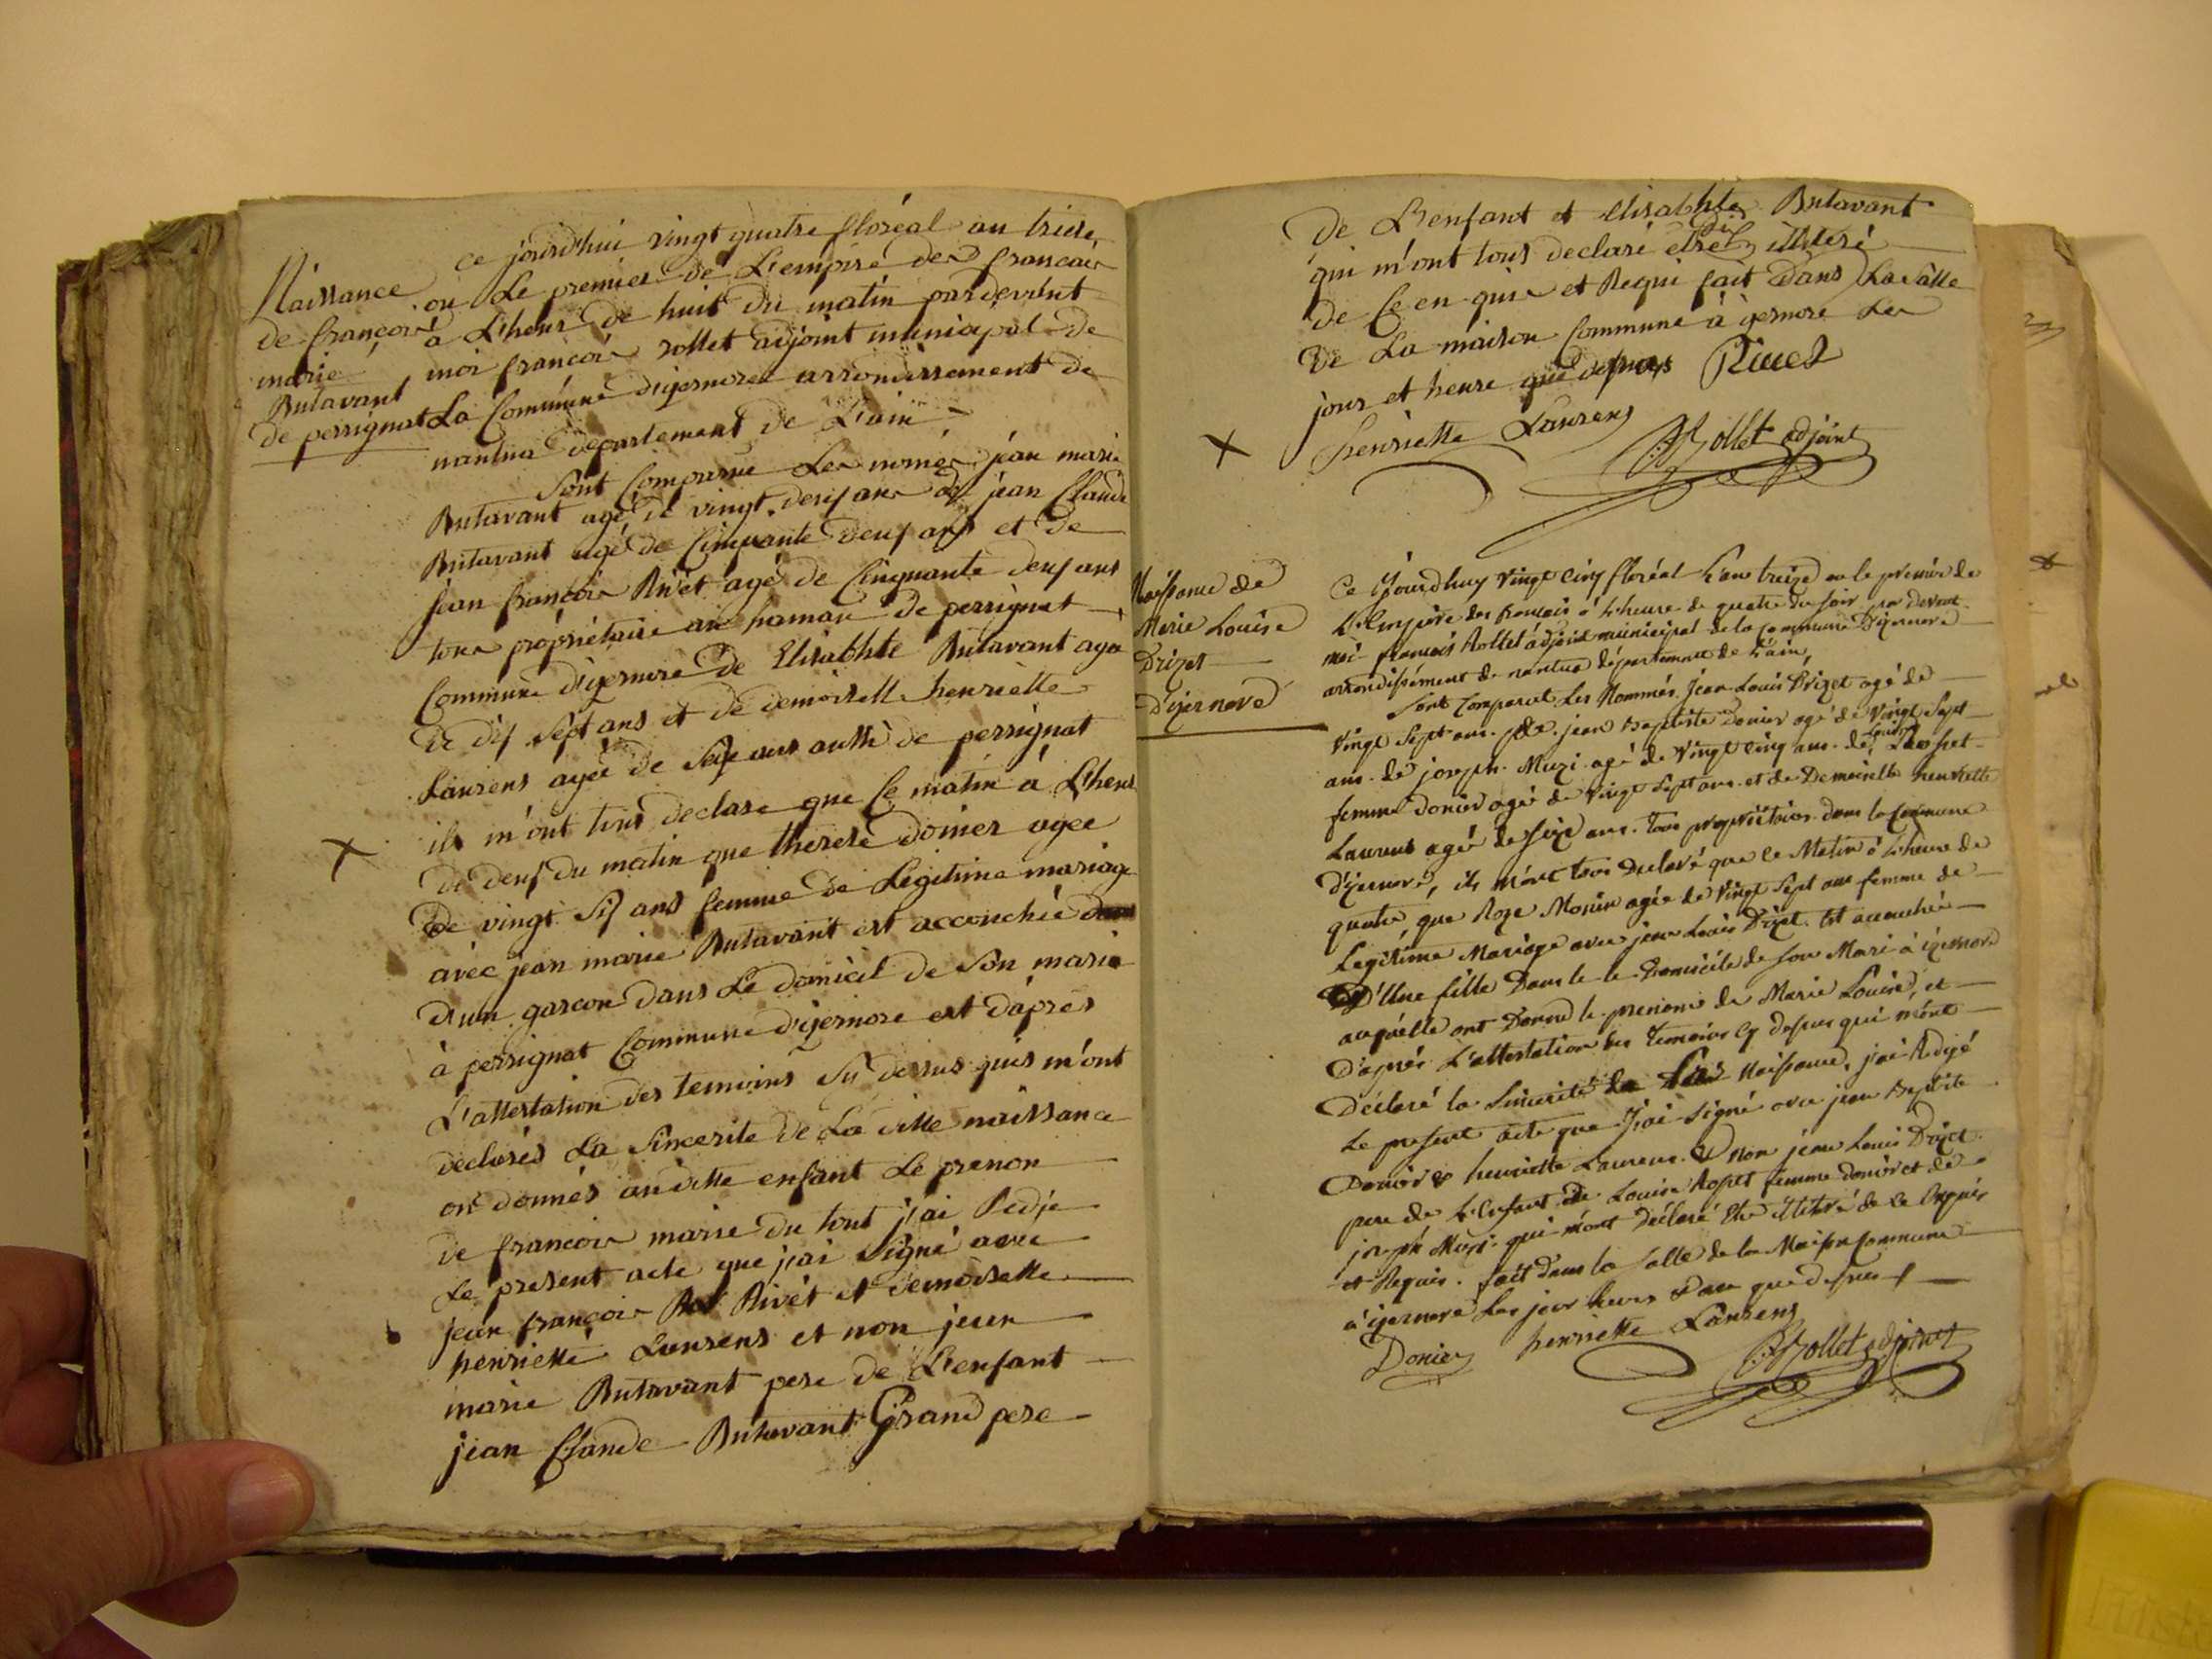 Naissance
de francois
marie
Butavant
de perrignat
ce jourd'hui vingt quatre floréal an treize
ou Le premier de L'empire des francais
à L'heur de huit du matin pardevent
moi francois rollet adjoint municipal de
La Commune d'izernore arrondissement de
nantua departement de L'ain
Sont Comparue Les només jéan marie
Butavant agé de vingt deux ans de jéan Claude
Butavant agé de Cinquante deux ans et de
jéan francois Rivet agé de Cinquante deux ans
tous propriétaire au hamau de perrignat
Commune d'izernore de Elisabhte Butavant agée
de dix sept ans et de demoiselle henriette
Laurens agée de Seize ans aussi de perrignat
ils m'ont tous declare que Ce matin à L'heur
de deux du matin que therese donier agée
de vingt Six ans femme de Legitime mariage
avéc jean marie Butavant est accouchée
d'un garcon dans Le domicil de Son marie
à perrignat Commune d'izernore et d'aprés
L'attestation des temoins Sy dessus quis m'ont
déclarés La Sincerite de La ditte naissance
ont donnés auditte enfant Le prenon
de francois marie du tout j'ai Redje
Le present acte que j'ai Signé avec
jean francois Rivét et demoiselle
henriette Laurens et non jean
marie Butavant pere de L'enfant
jéan Claude Butavant Grand pere
de L'enfant et elisabhte Butavant
qui m'ont tous declaré etre illiteré
de Ce en quis et Requi fait dans La Salle
de La maison Commune à izernore Les
jour et heure que desus Rivet
henriette Laurens
Rollet adjoint
Naissance de
Marie Louise
Drizet
D'izernore
Ce Jourdhuy Vingt Cinq floréal L'an treize ou le premier de
L'Empire des francais à L'heure de quatre du soir par devant
moi francois Rollet adjoint municipal de la Commune D'izernore
arrondissement de nantua département de L'ain,
Sont Comparut Les Nommés Jean Louis Drizet agé de
Vingt Sept ans. de jean Baptiste Donier agé de Vingt Sept
ans. de joseph Muzi agé de Vingt cinq ans. de Louise Rosset
femme Donier agée de Vingt Sept ans. et de Demoiselle henriette
Laurens agée de seize ans. Tous propriétaires dans la Commune
d'izernore, ils m'ont tous Declaré que ce Matin à L'heure de
quatre, que Roze Monin agée de Vingt Sept ans femme de
Legitime Mariage avec jean Louis Drizet. Est accouchée
D'Une fille Dans le le Domicile de son Mari à izernore
auquelle ont Donné le prenoms de Marie Louise, et
D'aprés L'attestation des Temoins cy dessus qui m'ont
Déclaré la Sincerité Naissance, j'ai Redigé
Le present acte que J'ai Signé avec jean Baptiste
Donier & henriette Laurens. & Non jean Louis Drizet
pere de L'Enfant de Louise Rosset femme donier et de
joseph Muzi qui m'ont Déclaré Etre illitéré de Ce Enquis
et Requis. fait dans la Salle de la Maison Commune
à izernore Les jour heure & an que dessus
Donier henriette Laurens
Rollet adjoint